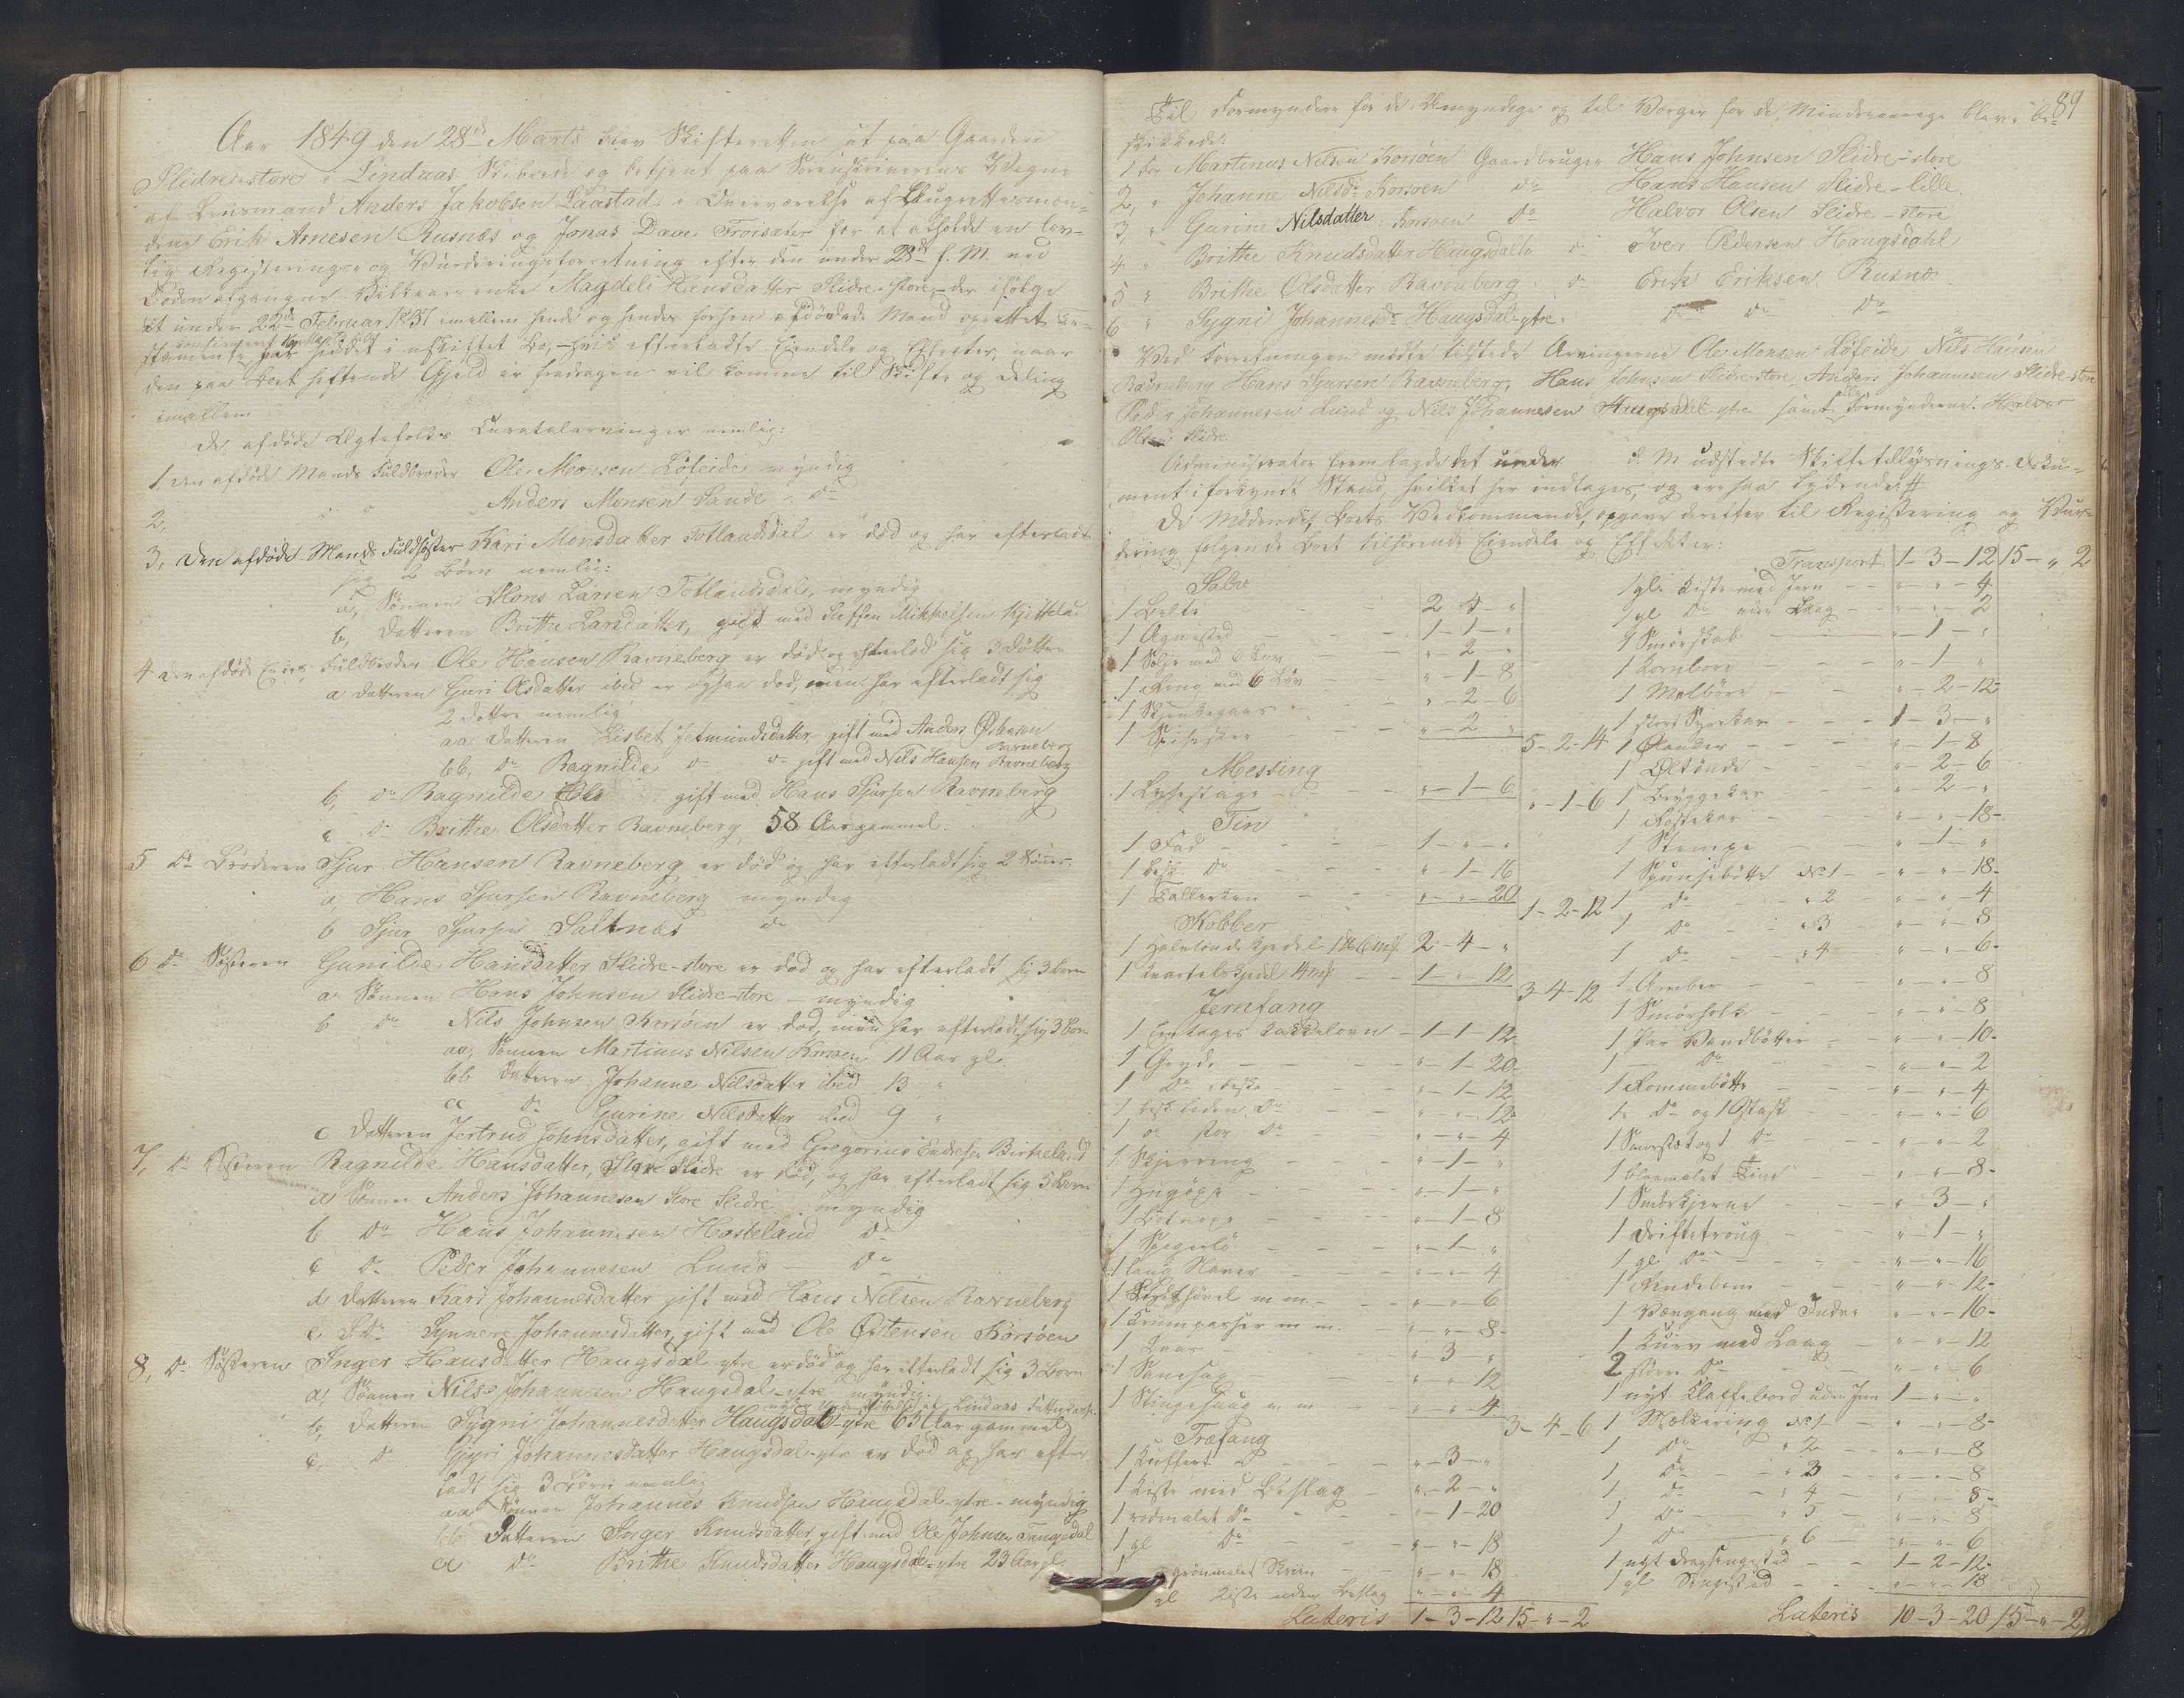 Aar 1849 den 28de Marts blev Skifteretten sat paa Gaarden
Slidre-store i Lindaas Skibrede og betjent paa Sorenskriverens Vegne
af Lensmand Anders Jakobsen Laastad i Overværelse af Laugrettesmæn-
dene Erik Arnesen Rusnæs og Jonas Daae Froisæter for at afholde en lov-
lig Registerings- og Vurderingsforretning efter den under 28de f. M. ved
Døden afgangne Magdeli Hansdatter Slidre-store, der ifølge
et under 22de Februar 1837 imellem hende og hendes forhen afdøde Mand oprettet Te-
stamente har siddet i uskiftet Bo, hvis efterladte Eiendele og Effecter, naar
den paa Boet heftende Gjæld er fradragen vil komme til Skifte og Deling
imellem
de afdøde Ægtefolks Arvinger nemlig:
1, den afdøde Mands Fuldbroder Ole Monsen Løfeide myndig
2, Anders Monsen Sande do
3, Den afdøde Mands Fuldsøster Kari Monsdatter Totlandsdal er død og har efterladt
sig 2 Børn nemlig:
a, Sønnen Mons Larsen Totlandsdal, myndig
b, Datteren Brithe Larsdatter, gift med Steffen Mikkelsen
4 den afdøde Enkes Fuldbroder Ole Hansen Ravneberg er død og efterlod sig 3 Døttre
a Datteren Guri Olsdatter ibid er ogsaa død, men har efterladt sig
2 Døttre nemlig
aa Datteren Lisbet Jetmundsdatter gift med Anders Østensen
Ravneberg
bb, do Ragnilde do gift med Nils Hansen Ravneberg
b, do Ragnilde Ols gift med Hans Sjursen Ravneberg
c do Brithe Olsdatter Ravneberg, 58 Aar gammel.
5 do Broderen Sjur Hansen Ravneberg er død og har efterladt sig 2 Sønner
a, Hans Sjursen Ravneberg myndig
b Sjur Sjursen Saltnes do
6 do Søsteren Gunilde Hansdatter Slidre-store er død og har efterladt sig 3 Børn
a Sønnen Hans Johnsen Slidre-store - myndig
b do Nils Johnsen Korsøen er død, men har efterladt sig 3 Børn
aa, Sønnen Martinus Nilsen Korsøen 11 Aar gl.
bb Datteren Johanne Nilsdatter ibid 13 "
cc do Gurine Nilsdatter ibid 9 "
c Datteren Jertrud Johnsdatter, gift med Gregorius Endresen Birkeland
7, do Søsteren Ragnilde Hansdatter, Store Slidre er død, og har efterladt sig 5 Børn
a Sønnen Anders Johannesen Store Slidre myndig
b do Hans Johannesen Hosteland do
c do Peder Johannesen Lund - do
d Datteren Kari Johannesdatter gift med Hans Nilsen Ravneberg
e do Synneve Johannesdatter, gift med Ole Østensen Korsøen
8, do Søsteren Inger Hansdatter Haugsdal-ytre er død og har efterladt sig 3 Børn
a, Sønnen Nils Johannesen Haugsdal-ytre myndig
nyder Understøttelse af Lindaas Fattigkasse
b, Datteren Sygni Johannesdatter Haugsdal-ytre 65 Aar gammel
c, do Johannesdatter Haugsdal-ytre er død og har efter-
ladt sig 3 Børn nemlig
aa Sønnen Johannes Knudsen Haugsdal-ytre - myndig
bb Datteren Inger Knudsdatter, gift med Ole Johnsen Haugsdal
cc do Brithe Knudsdatter Haugsdal-ytre 23 Aar gl.
89
Til Formyndere for de Umyndige og til Verger for de Mindreaarige blev be-
skikkede:
1 For Martinus Nilsen Korsøen Gaardbruger Hans Johnsen Slidre-store
2, " Johanne Nilsdr Korsøen do Hans Hansen Slidre-lille
3, " Gurine Nilsdatter Korsøen do Halvor Olsen Slidre-store
4 " Brithe Knudsdatter Haugsdal do Iver Pedersen Haugsdahl
5 " Brithe Olsdatter Ravneberg do Erik Eriksen Rusnæs
6 " Sygni Johannesdr Haugsdal-ytre do do do
Ved Forretningen mødte tilstede Arvingerne Ole Monsen Løfeide, Nils Hansen
Ravneberg, Hans Sjursen Ravneberg, Hans Johnsen Slidre-store, Anders Johannesen Slidre-store
Peder Johannesen Lund og Nils Johannesen Haugsdal-ytre samt Formynderne. Halvor
Olsen Slidre
Administrator fremlagde det under d. M. udstedte Skiftetillysnings-Doku-
ment i forkyndt Stand, hvilket her indtages, og er saa lydende #
De Mødende, Boets Vedkommende, opgave derefter til Registering og Vur-
dering følgende Boet tilhørende Eiendele og Effecter:
Sølv
1 Belte - 2-4-"
1 Agnisted - 1-1-"
1 Sølje med 6 Løv - "-2-"
1 Ring med 6 Løv - "-1-8
1 - "-2-6
1 Skee - "-2-" 5-2-14
Messing
1 Lysestage - "-1-6 "-1-6
Tin
1 Fad - 1-"-"
1 do - "-1-16
1 Tallerken - "-"-20 1-2-12
Kobber
1 Halvtønde Kjedel 2-4-"
1 1-"-12 3-4-12
Jernfang
1 Kakkelovn - 1-1-12
1 Gryde - "-1-20
1 do - "-1-12
1 do - "-"-12
1 do do - "-"-4
1 - "-1-"
1 Hugøxe - "-1-"
1 - "-1-8
1 - "-1-"
1 lang Naver - "-"-4
1 m m - "-"-6
1 m m. "-"-8
1 Laas - "-3-"
1 - "-"-12
1 m m - "-"-4 3-4-6
Træfang
1 Kuffert - "-3-"
1 Kiste med Beslag - "-2-"
1 rødmalet do - "-1-20
1 gl do - "-"-18
1 grønmalet Skrin "-"-18
gl Kiste uden Beslag "-"-4
Lateris 1-3-12 15-"-2
Transport 1-3-12 15-"-2
1 gl. Kiste med Jern - "-"-4
1 gl do uden Laag - "-"-2
1 Smørskab - "-1-"
1 - "-1-"
1 - "-2-12
1 stort - 1-3-"
1 Ølanker - "-1-8
1 Øltønde - "-2-6
1 Bryggekar - "-2-"
1 - "-"-18
1 Stampe "-1-"
1 No 1 - "-"-18
1 do " 2 "-"-4
1 do " 3 "-"-8
1 do " 4 "-"-6
1 Ambar - "-"-8
1 - "-"-8
1 Par Vandbøtter - "-"-10
1 do - "-"-2
1 Rommebøtte "-"-4
1 do og 1 Ostask "-"-6
1 do "-"-2
1 blaamalet Tine "-"-8
1 Smørkjerne "-3-"
1 Driftetroug "-1-"
1 gl do - "-"-16
1 - "-"-12
1 med Indre "-"-16
1 Kurv med Laag "-"-12
2 større do "-"-6
1 nyt Klaffebord uden Jern 1-"-"
1 Melkering No 1 "-"-8
1 do " 2 "-"-8
1 do " 3 "-"-8
1 do " 4 "-"-8
1 do " 5 "-"-8
1 do " 6 "-"-6
1 nyt - 1-2-12
1 gl Sengested - "-"-18
Lateris 10-3-20 15-"-2